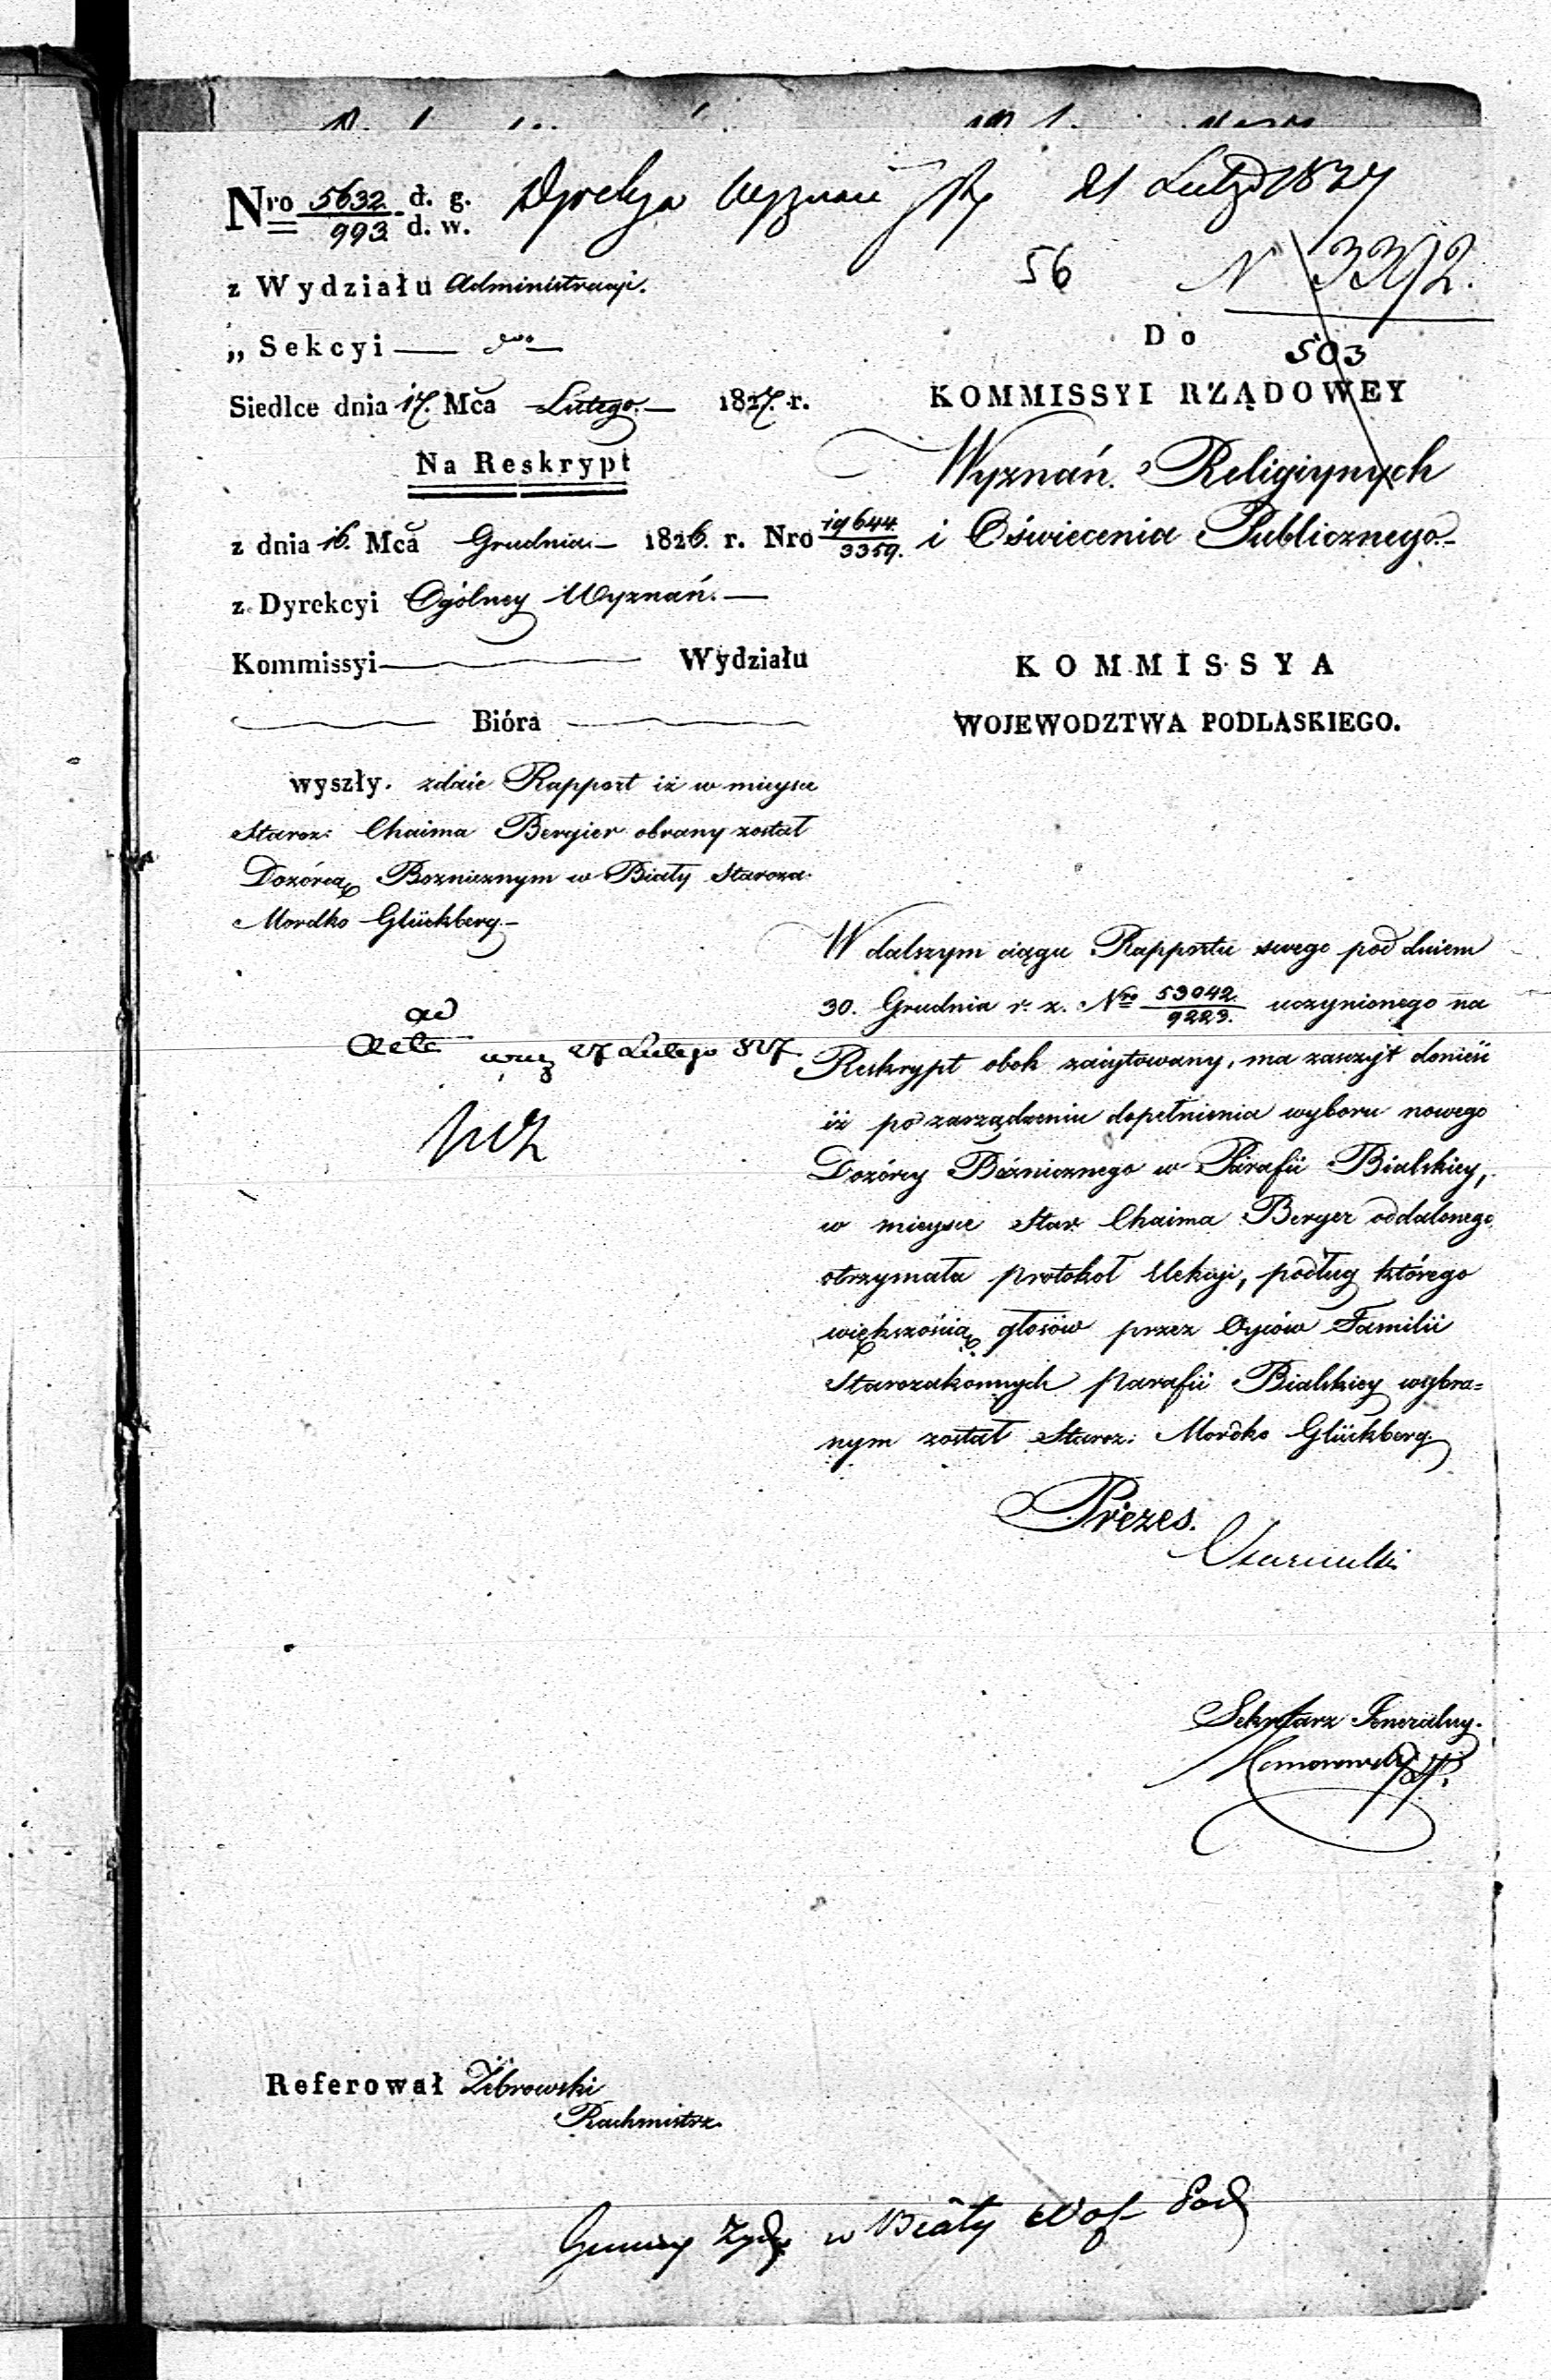 Nro 5632 d. g.
993 d. w.
Dyrekcya Wyznań 21 Lutego 1827
56 N 3372.
503
z Wydziału Administracyi.
„ Sekcyi —
Siedlce dnia 17. Mca Lutego.— 1827. r.
Na Reskrypt
z dnia 16. Mca Grudnia.— 1826. r. Nro 19644.
3359.
z Dyrekcyi Ogólney Wyznań.—
Kommissyi— Wydziału
Bióra
wyszły. zdaie Rapport iż w mieysce
Staroz: Chaima Bergier obrany został
Dozórcą Boznicznym w Biały Staroza:
Mordko Glückberg.—
ad
Acta 27 Lutego 827
Do
KOMMISSYI RZĄDOWEY
Wyznań Religiynych
i Oświecenia Publicznego.—
KOMMISSYA
WOJEWODZTWA PODLASKIEGO.
W dalszym ciągu Rapportu swego pod dniem
30. Grudnia r. z. Nro 53042. uczynionego na
9223.
Reskrypt obok zacytowany, ma zaszczyt donieść
iż po zarządzeniu dopełnienia wyboru nowego
Dozórcy Bóżnicznego w Parafii Bialskiey,
w mieysce Star. Chaima Berger oddalonego
otrzymała protokoł elekcyi, podług którego
większością głosów przez Oyców Familii
Starozakonnych parafii Bialskiey wybra=
nym został Staroz: Mordko Glückberg.
Prezes.
Sekretarz Jeneralny.
Referował Żebrowski
Rachmistrz.
Gminy Żyd. w Biały Woj. Pod